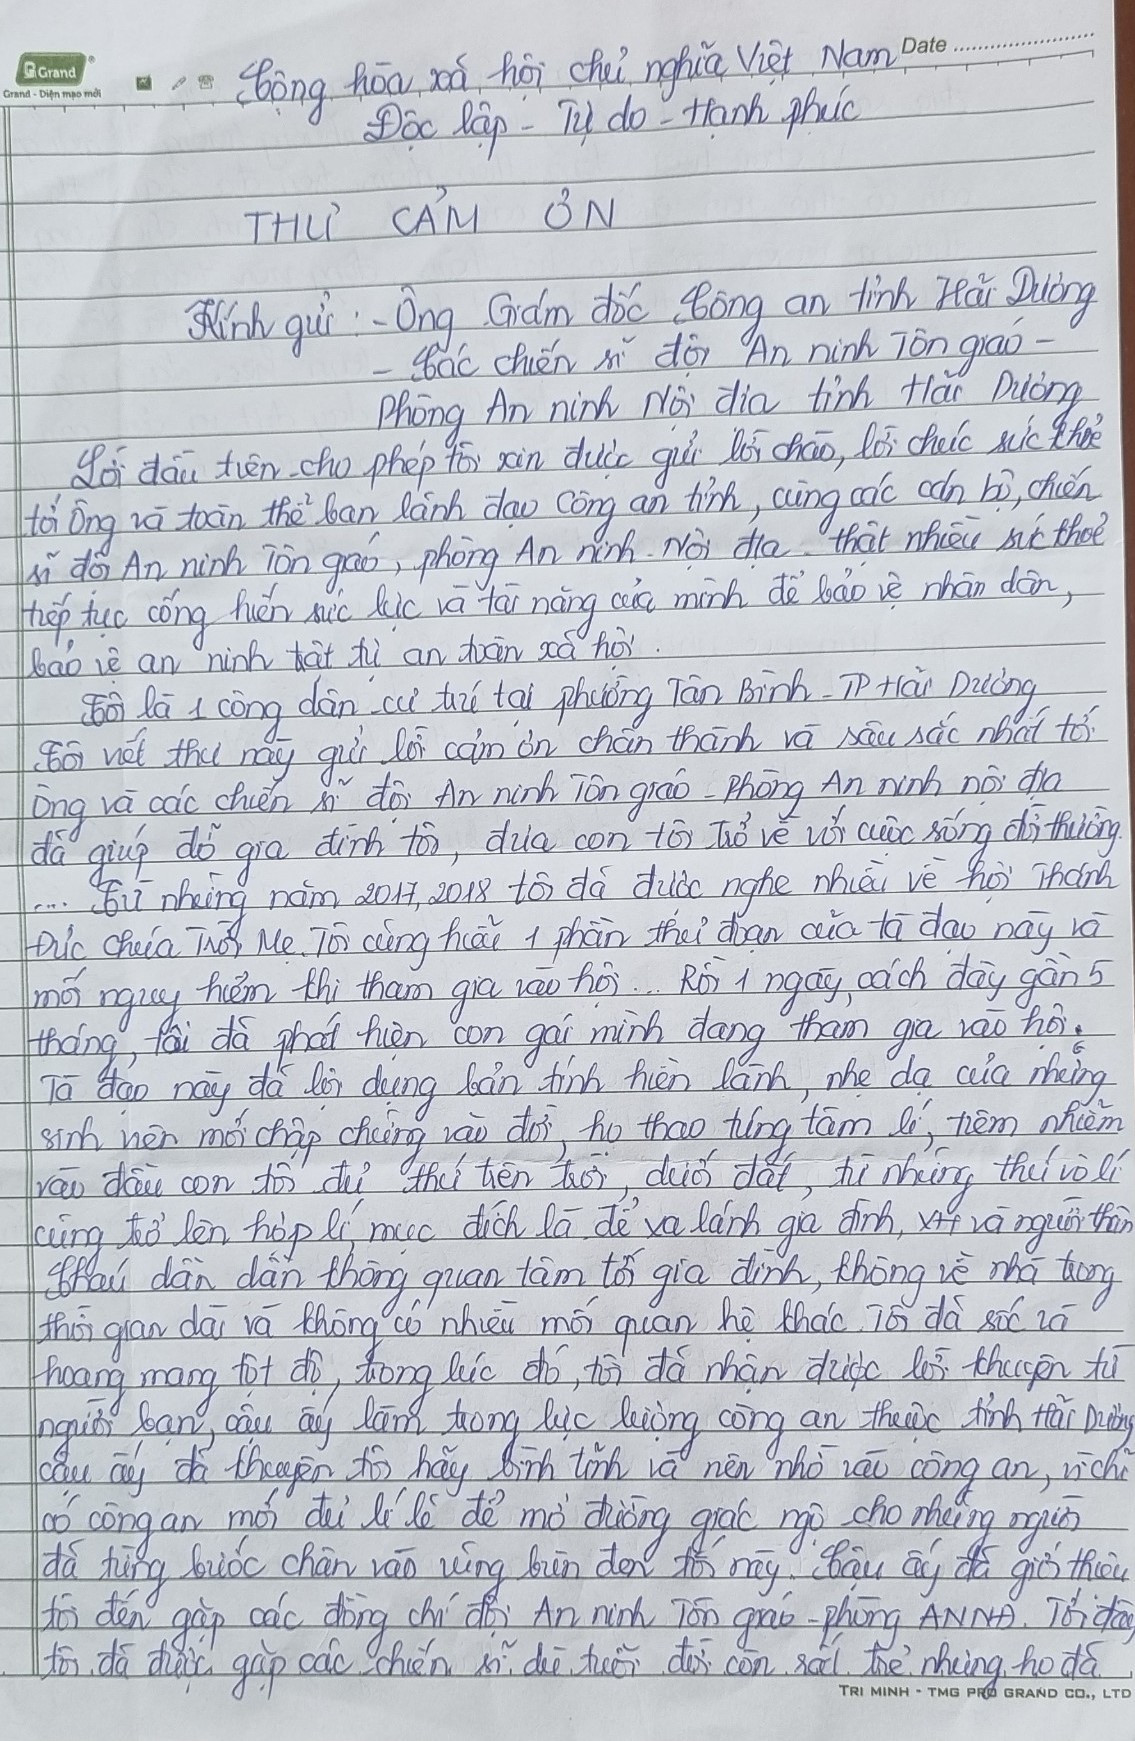 Grand
Grand - Diện mạo mới
Date
Cộng hòa xã hội chủ nghĩa Việt Nam
Độc lập - Tự do - Hạnh phúc
THƯ CẢM ƠN
Kính gửi: - Ông Giám đốc Công an tỉnh Hải Dương
- Các chiến sĩ đội An ninh Tôn giáo -
Phòng An ninh Nội địa tỉnh Hải Dương
Lời đầu tiên cho phép tôi xin được gửi lời chào, lời chúc sức khỏe
tới Ông và toàn thể ban lãnh đạo Công an tỉnh, cùng các cán bộ, chiến
sĩ đội An ninh Tôn gáo, phòng An ninh Nội địa thật nhiều sức khoẻ
tiếp tục cống hiến sức lực và tài năng của mình để bảo vệ nhân dân,
bảo vệ an ninh trật tự an toàn xã hội.
Tôi là 1 công dân cư trú tại phường Tân Bình - TP Hải Dương
Tôi viết thư này gửi lời cảm ơn chân thành và sâu sắc nhất tới
Ông và các chiến sĩ đội An ninh Tôn giáo - Phòng An ninh nội địa
đã giúp đỡ gia đình tôi, đưa con tôi trở về với cuộc sống đời thường.
.... Từ những năm 2017, 2018 tôi đã được nghe nhiều về hội Thánh
Đức Chúa Trời Mẹ. Tôi cũng hiểu 1 phần thủ đoạn của tà đạo này và
mối nguy hiểm khi tham gia vào hội... Rồi 1 ngày, cách đây gần 5
tháng, tôi đã phát hiện con gái mình đang tham gia vào hội.
Tà đạo này đã lợi dụng bản tính hiền lành, nhẹ dạ của những
sinh viên mới chập chững vào đời, họ thao túng tâm lí, tiêm nhiễm
vào đầu con tôi đủ thứ trên trời, dưới đất, từ những thứ vô lí
cũng trở lên hợp lí, mục đích là để xa lánh gia đình, XH và người thân
Cháu dần dần không quan tâm tới gia đình, không về nhà trong
thời gian dài và không có nhiều mối quan hệ khác. Tôi đã sốc và
hoang mang tột độ, trong lúc đó, tôi đã nhận được lời khuyên từ
người bạn, cậu ấy làm trong lực lượng công an thuộc tỉnh Hải Dương
cậu ấy đã khuyên tôi hãy bình tĩnh và nên nhờ vào công an, vì chỉ
có công an mới đủ lí lẽ để mở đường giác ngộ cho những người
đã từng bước chân vào vũng bùn đen tối này. Cậu ấy đã giới thiệu
tôi đến gặp các đồng chí đội An ninh Tôn giáo - phòng ANNĐ. Tới đây
tôi đã được gặp các chiến sĩ dù tuổi đời còn rất trẻ nhưng họ đã
TRI MINH - TMG PRO GRAND CO., LTD